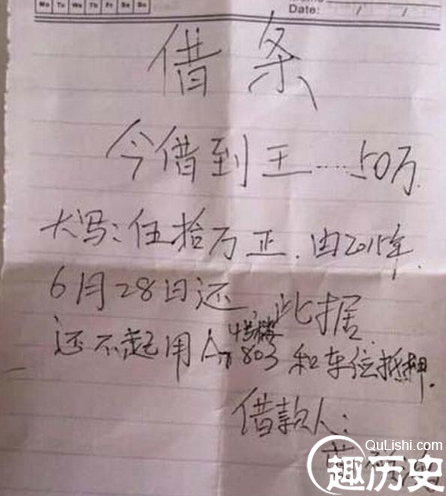 Mo Tu We Th Fr Sa Su
Date: / /
借条
今借到王....50万
大写:伍拾万正.由2015年.
6月28日还,此据
4号楼
还不起用A 803和车位抵押.
借款人:
QuLishi.com
趣历史